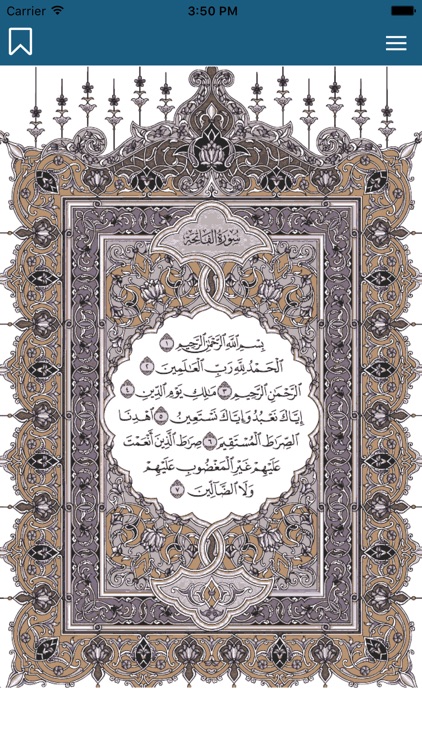 Carrier 3:50 PM
سُورَةُ الفَاتِحَةِ
بِسْمِ اللَّهِ الرَّحْمَٰنِ الرَّحِيمِ ١
الْحَمْدُ لِلَّهِ رَبِّ الْعَالَمِينَ ٢
الرَّحْمَٰنِ الرَّحِيمِ ٣ مَالِكِ يَوْمِ الدِّينِ ٤
إِيَّاكَ نَعْبُدُ وَإِيَّاكَ نَسْتَعِينُ ٥ اهْدِنَا
الصِّرَاطَ الْمُسْتَقِيمَ ٦ صِرَاطَ الَّذِينَ أَنْعَمْتَ
عَلَيْهِمْ غَيْرِ الْمَغْضُوبِ عَلَيْهِمْ
وَلَا الضَّالِّينَ ٧